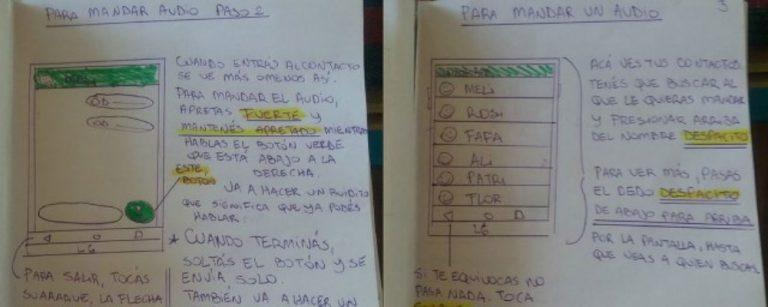 PARA MANDAR AUDIO PASO 2
CUANDO ENTRÁS AL CONTACTO
SE VE MÁS O MENOS ASÍ.
PARA MANDAR EL AUDIO,
APRETAS FUERTE Y
MANTENÉS APRETADO MIENTRAS
HABLAS EL BOTÓN VERDE
QUE ESTÁ ABAJO A LA
DERECHA.
ESTE
BOTÓN
VA A HACER UN RUIDITO
QUE SIGNIFICA QUE YA PODÉS
HABLAR.
* CUANDO TERMINÁS,
SOLTÁS EL BOTÓN Y SE
ENVÍA SOLO.
TAMBIÉN VA A HACER UN
LG
PARA SALIR, TOCÁS
SUAAAAVE, LA FLECHA
PARA MANDAR UN AUDIO
3
MELI
ROSI
FAFA
ALI
PATRI
FLOR
LG
ACÁ VES TUS CONTACTOS
TENÉS QUE BUSCAR AL
QUE LE QUIERAS MANDAR
Y PRESIONAR ARRIBA
DEL NOMBRE DESPACITO
PARA VER MÁS, PASÁS
EL DEDO DESPACITO
DE ABAJO PARA ARRIBA
POR LA PANTALLA, HASTA
QUE VEAS A QUIEN BUSCAS
SI TE EQUIVOCAS NO
PASA NADA. TOCA